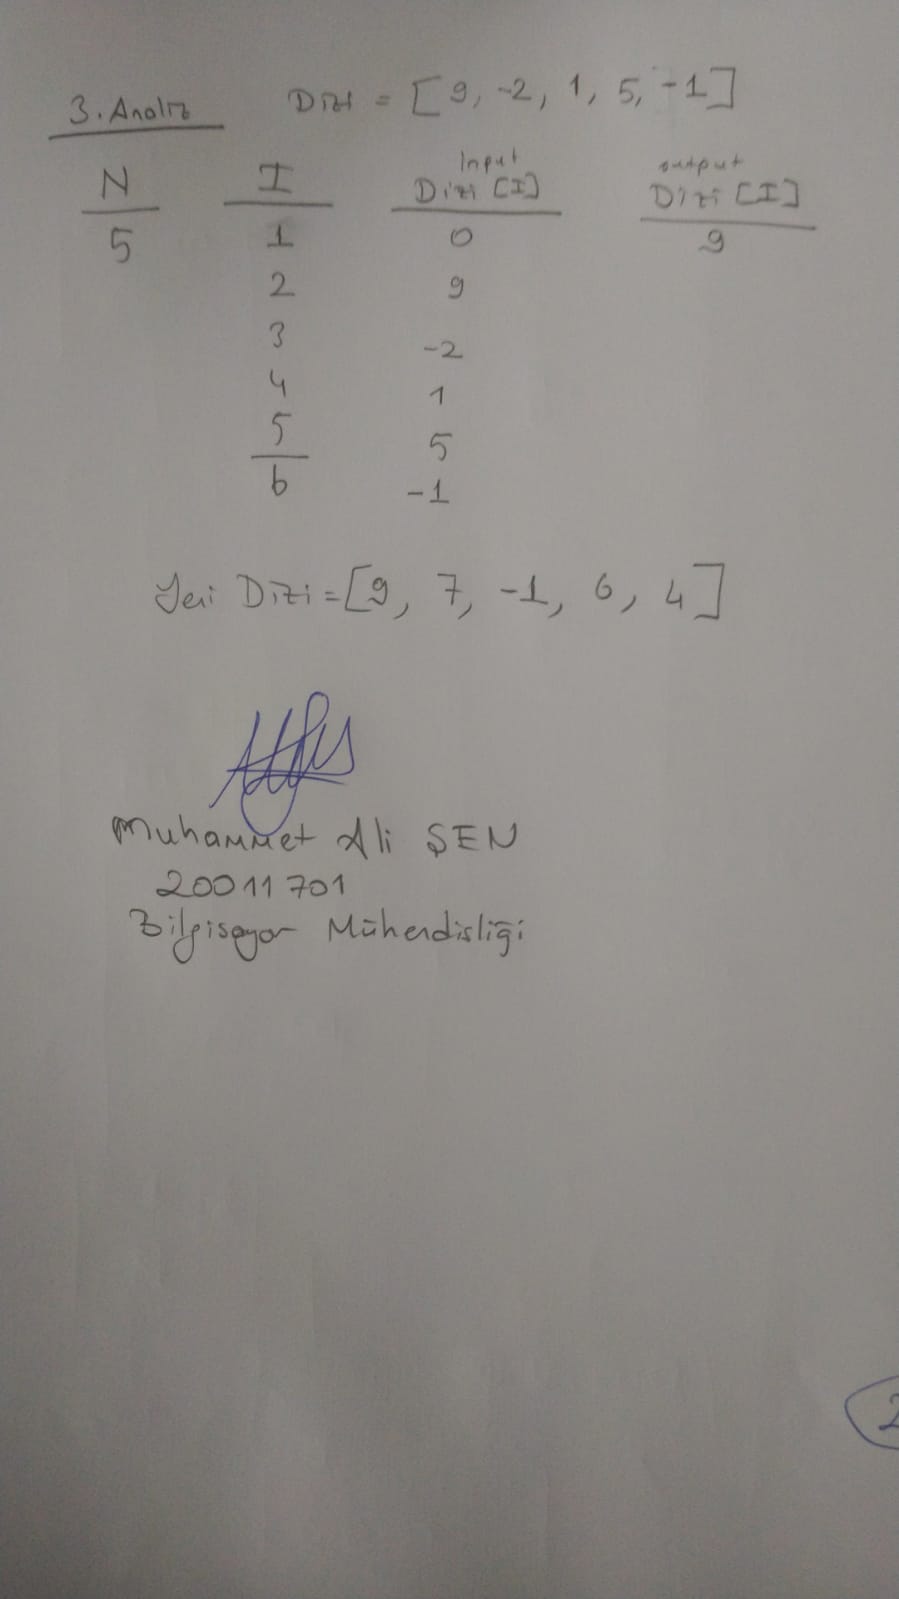 3. Analiz Dizi = [9, -2, 1, 5, -1]
N I Input Dizi [I] output Dizi [I]
5 1 0 9
2 9
3 -2
4 1
5 5
6 -1
Yeni Dizi = [9, 7, -1, 6, 4]
Muhammet Ali ŞEN
20011701
Bilgisayar Mühendisliği
2